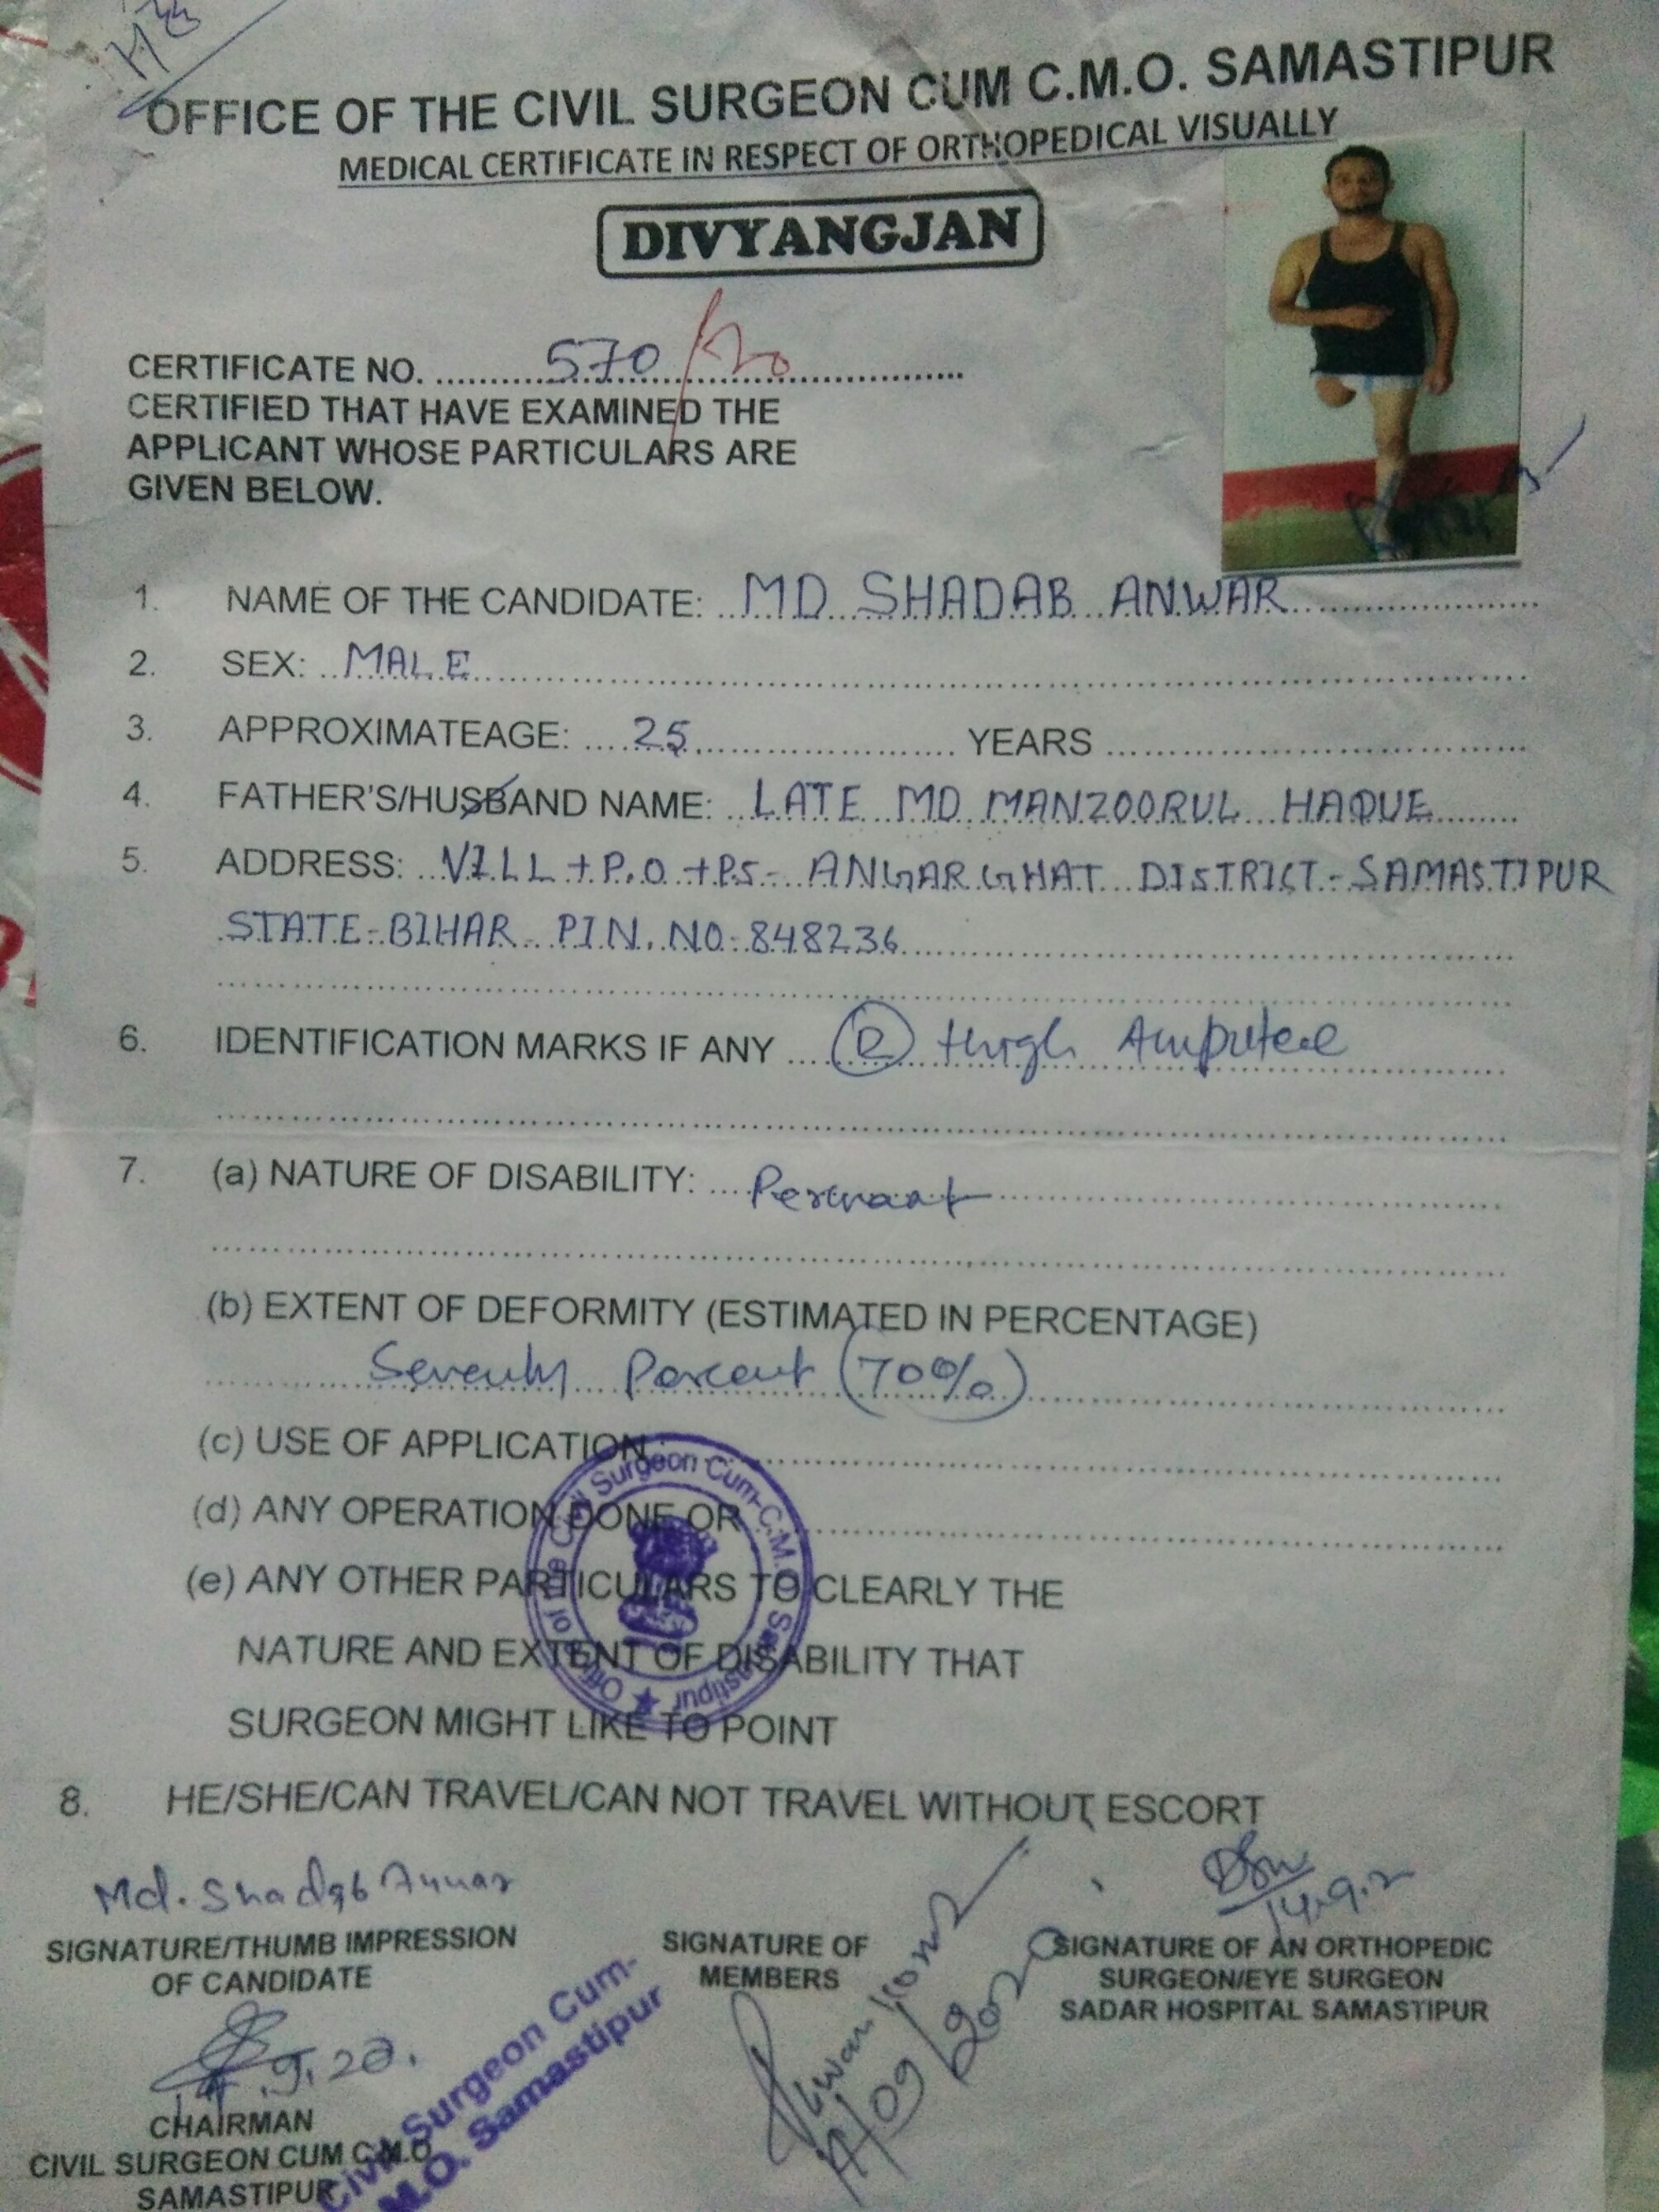 OFFICE OF THE CIVIL SURGEON CUM C.M.O. SAMASTIPUR
MEDICAL CERTIFICATE IN RESPECT OF ORTHOPEDICAL VISUALLY
DIVYANGJAN
CERTIFICATE NO. 570/20
CERTIFIED THAT HAVE EXAMINED THE
APPLICANT WHOSE PARTICULARS ARE
GIVEN BELOW.
1. NAME OF THE CANDIDATE: MD SHADAB ANWAR
2. SEX: MALE
3. APPROXIMATEAGE: 25 YEARS
4. FATHER'S/HUSBAND NAME: LATE MD MANZOORUL HAQUE
5. ADDRESS: VILL + P.O + P.S- ANGAR GHAT DISTRICT- SAMASTIPUR
STATE-BIHAR PIN. NO-848236
6. IDENTIFICATION MARKS IF ANY (R) thigh Amputee
7. (a) NATURE OF DISABILITY:
(b) EXTENT OF DEFORMITY (ESTIMATED IN PERCENTAGE)
Seventy Percent (70%)
(c) USE OF APPLICATION
(d) ANY OPERATION DONE OR
(e) ANY OTHER PARTICULARS TO CLEARLY THE
NATURE AND EXTENT OF DISABILITY THAT
SURGEON MIGHT LIKE TO POINT
Office of the Civil Surgeon Cum-C.M.O. Samastipur
8. HE/SHE/CAN TRAVEL/CAN NOT TRAVEL WITHOUT ESCORT
Md. Shadab Anwar
SIGNATURE/THUMB IMPRESSION
OF CANDIDATE
SIGNATURE OF
MEMBERS
14.9.2
SIGNATURE OF AN ORTHOPEDIC
SURGEON/EYE SURGEON
SADAR HOSPITAL SAMASTIPUR
14.9.20.
CHAIRMAN
CIVIL SURGEON CUM C.M.O
SAMASTIPUR
Civil Surgeon Cum-
M.O. Samastipur
14/09/2020